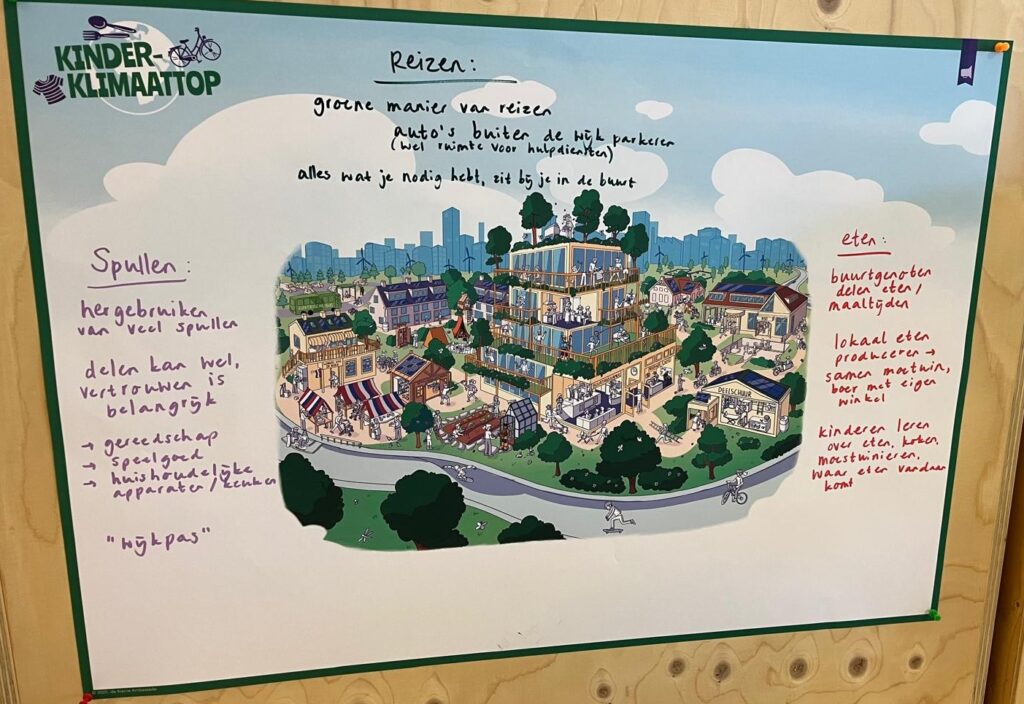 KINDER-
KLIMAATTOP
Reizen:
groene manier van reizen
auto's buiten de wijk parkeren
(wel ruimte voor hulpdiensten)
alles wat je nodig hebt, zit bij je in de buurt
Spullen:
hergebruiken
van veel spullen
delen kan wel,
vertrouwen is
belangrijk
→ gereedschap
→ speelgoed
→ huishoudelijke
apparaten/keuken
"wijkpas"
eten:
buurtgenoten
delen eten/
maaltijden
lokaal eten
produceren →
samen moetuin,
boer met eigen
winkel
kinderen leren
over eten, koken,
moestuinieren,
waar eten vandaan
komt
DEELSCHUUR